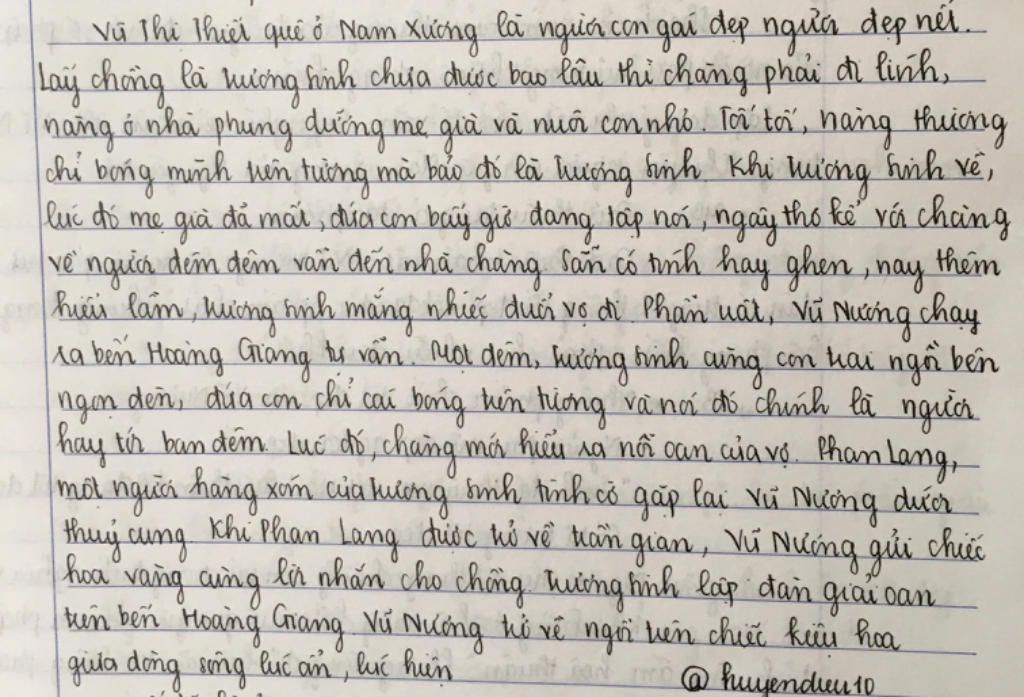 Vũ Thị Thiết quê ở Nam Xương là người con gái đẹp người đẹp nết.
Lấy chồng là Trương Sinh chưa được bao lâu thì chàng phải đi lính,
nàng ở nhà phụng dưỡng mẹ già và nuôi con nhỏ. Tối tối, nàng thường
chỉ bóng mình trên tường mà bảo đó là Trương Sinh. Khi Trương Sinh về,
lúc đó mẹ già đã mất, đứa con bấy giờ đang tập nói, ngây thơ kể với chàng
về người đêm đêm vẫn đến nhà chàng. Sẵn có tính hay ghen, nay thêm
hiểu lầm, Trương Sinh mắng nhiếc đuổi vợ đi. Phẫn uất, Vũ Nương chạy
ra bến Hoàng Giang tự vẫn. Một đêm, Trương Sinh cùng con trai ngồi bên
ngọn đèn, đứa con chỉ cái bóng trên tường và nói đó chính là người
hay tới ban đêm. Lúc đó, chàng mới hiểu ra nỗi oan của vợ. Phan Lang,
một người hàng xóm của Trương Sinh tình cờ gặp lại Vũ Nương dưới
thuỷ cung. Khi Phan Lang được trở về trần gian, Vũ Nương gửi chiếc
hoa vàng cùng lời nhắn cho chồng. Trương Sinh lập đàn giải oan
trên bến Hoàng Giang. Vũ Nương trở về ngồi trên chiếc kiệu hoa
giữa dòng sông lúc ẩn, lúc hiện
@huyendieu10